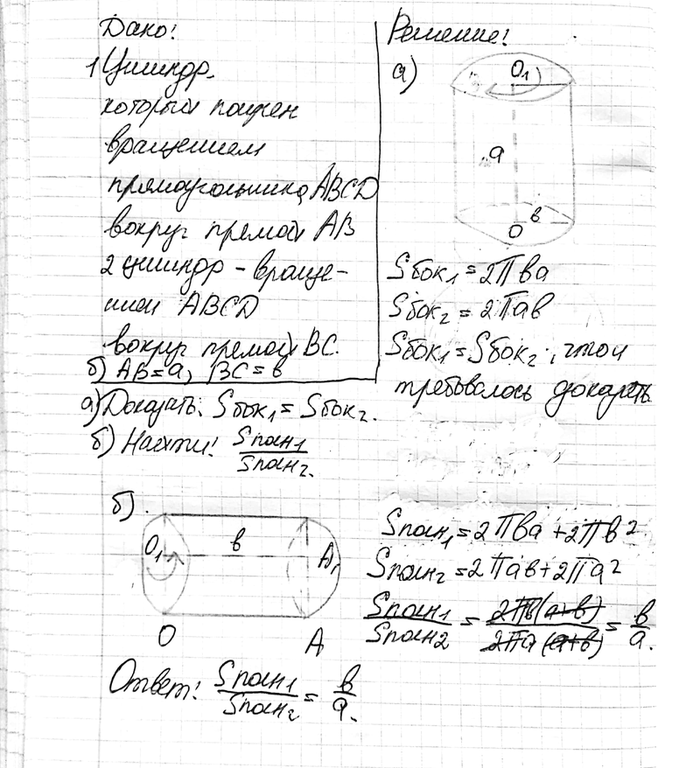 Дано:
1 Цилиндр,
который получен
вращением
прямоугольника ABCD
вокруг прямой AB
2 цилиндр - враще-
нием ABCD
вокруг прямой BC.
б) AB=a, BC=в
а) Доказать: Sбок₁ = Sбок₂.
б) Найти: Sполн₁/Sполн₂.
Решение:
а)
O₁
a
в
O
Sбок₁ = 2πва
Sбок₂ = 2πав
Sбок₁ = Sбок₂, что и
требовалось доказать
б).
O₁ в A₁
O A
Sполн₁ = 2πва + 2πв²
Sполн₂ = 2πав + 2πа²
Sполн₁/Sполн₂ = 2πв(а+в)/2πа(а+в) = в/а.
Ответ: Sполн₁/Sполн₂ = в/а.